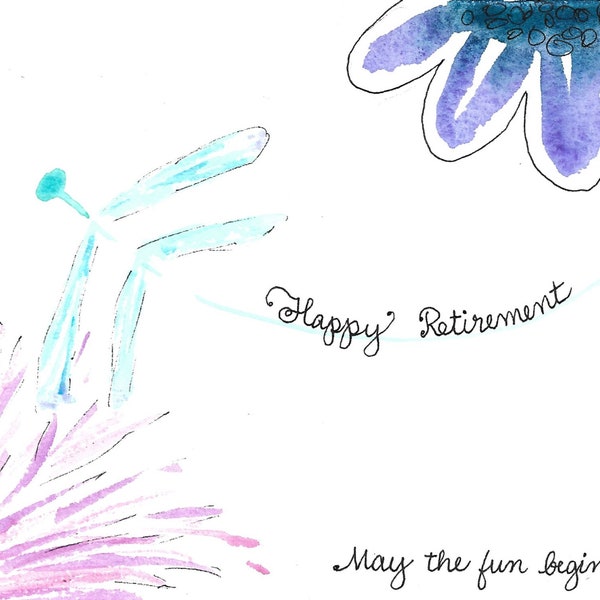 Happy Retirement
May the fun begin